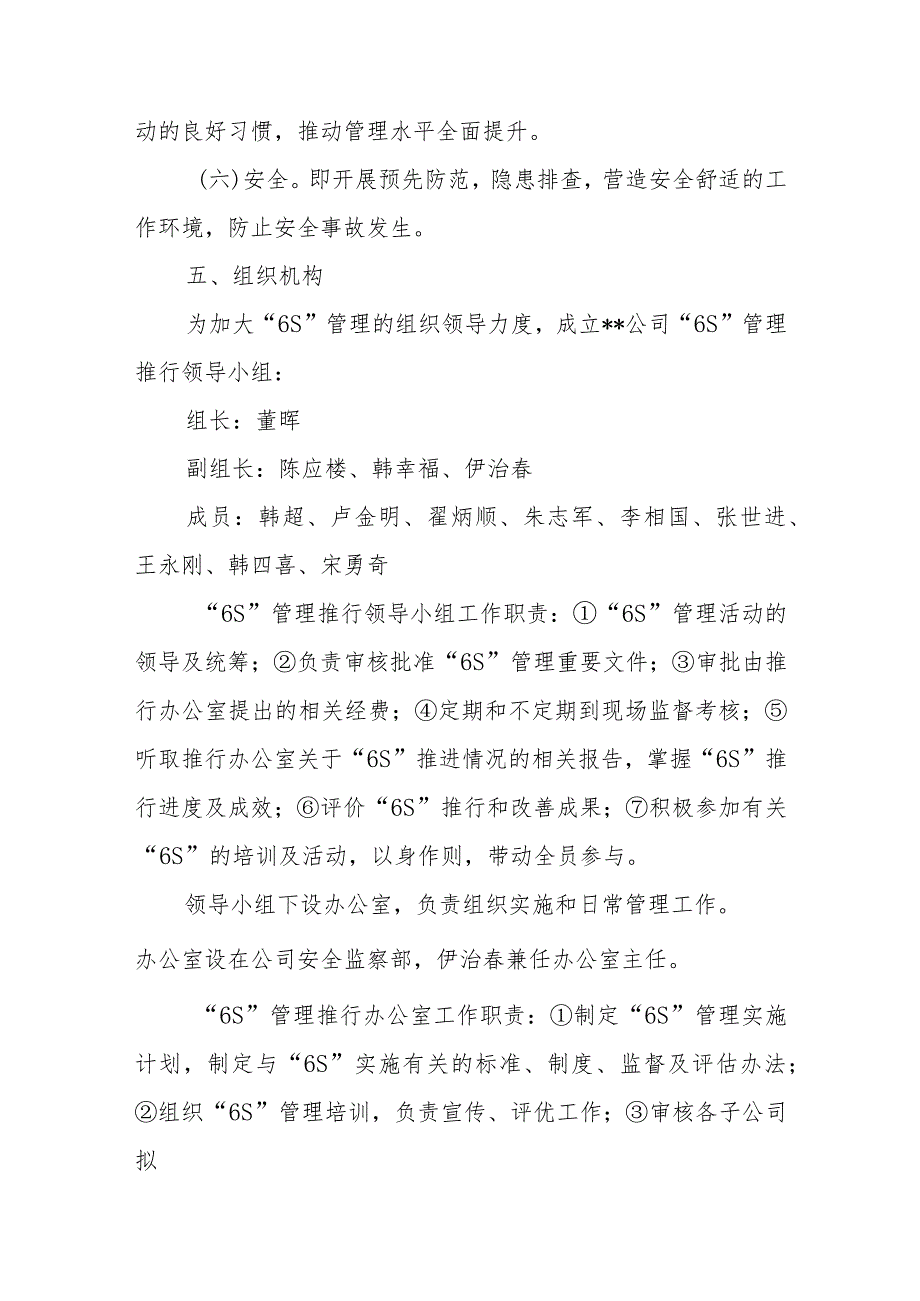 动的良好习惯，推动管理水平全面提升。
(六)安全。即开展预先防范，隐患排查，营造安全舒适的工
作环境，防止安全事故发生。
五、组织机构
为加大“6S”管理的组织领导力度，成立**公司“6S”管理
推行领导小组：
组长：董晖
副组长：陈应楼、韩幸福、伊治春
成员：韩超、卢金明、翟炳顺、朱志军、李相国、张世进、
王永刚、韩四喜、宋勇奇
“6S”管理推行领导小组工作职责：①“6S”管理活动的
领导及统筹；②负责审核批准“6S”管理重要文件；③审批由推
行办公室提出的相关经费；④定期和不定期到现场监督考核；⑤
听取推行办公室关于“6S”推进情况的相关报告，掌握“6S”推
行进度及成效；⑥评价“6S”推行和改善成果；⑦积极参加有关
“6S”的培训及活动，以身作则，带动全员参与。
领导小组下设办公室，负责组织实施和日常管理工作。
办公室设在公司安全监察部，伊治春兼任办公室主任。
“6S”管理推行办公室工作职责：①制定“6S”管理实施
计划，制定与“6S”实施有关的标准、制度、监督及评估办法；
②组织“6S”管理培训，负责宣传、评优工作；③审核各子公司
拟